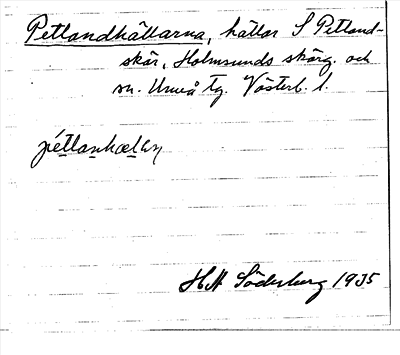 Petlandhällarna, hällar S Petland-
skär, Holmsunds skärg. och
sn. Umeå tg. Västerb. l.
HH Söderberg 1935